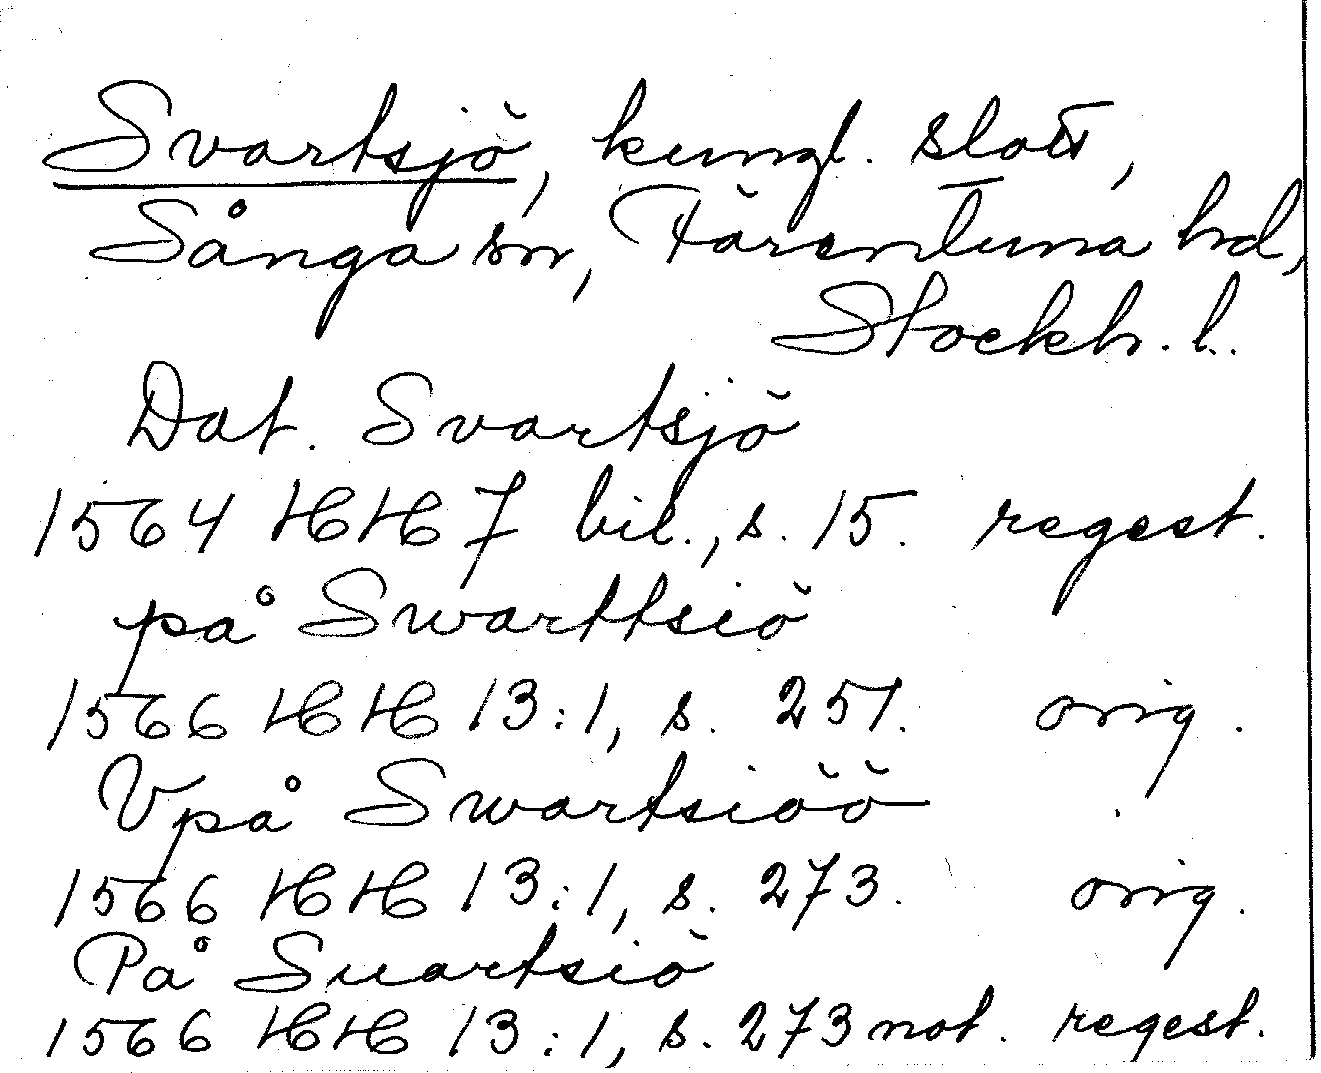 Svartsjö, kungl. slott,
Sånga sn, Färentuna hd,
Stockh. l.
Dat. Svartsjö
1564 HH 7 bil., s. 15. regest.
på Swarttsiö
1566 HH 13:1, s. 251. orig.
Vpå Swartsiöö
1566 HH 13:1, s. 273. orig.
På Suartsiö
1566 HH 13:1, s. 273 not. regest.